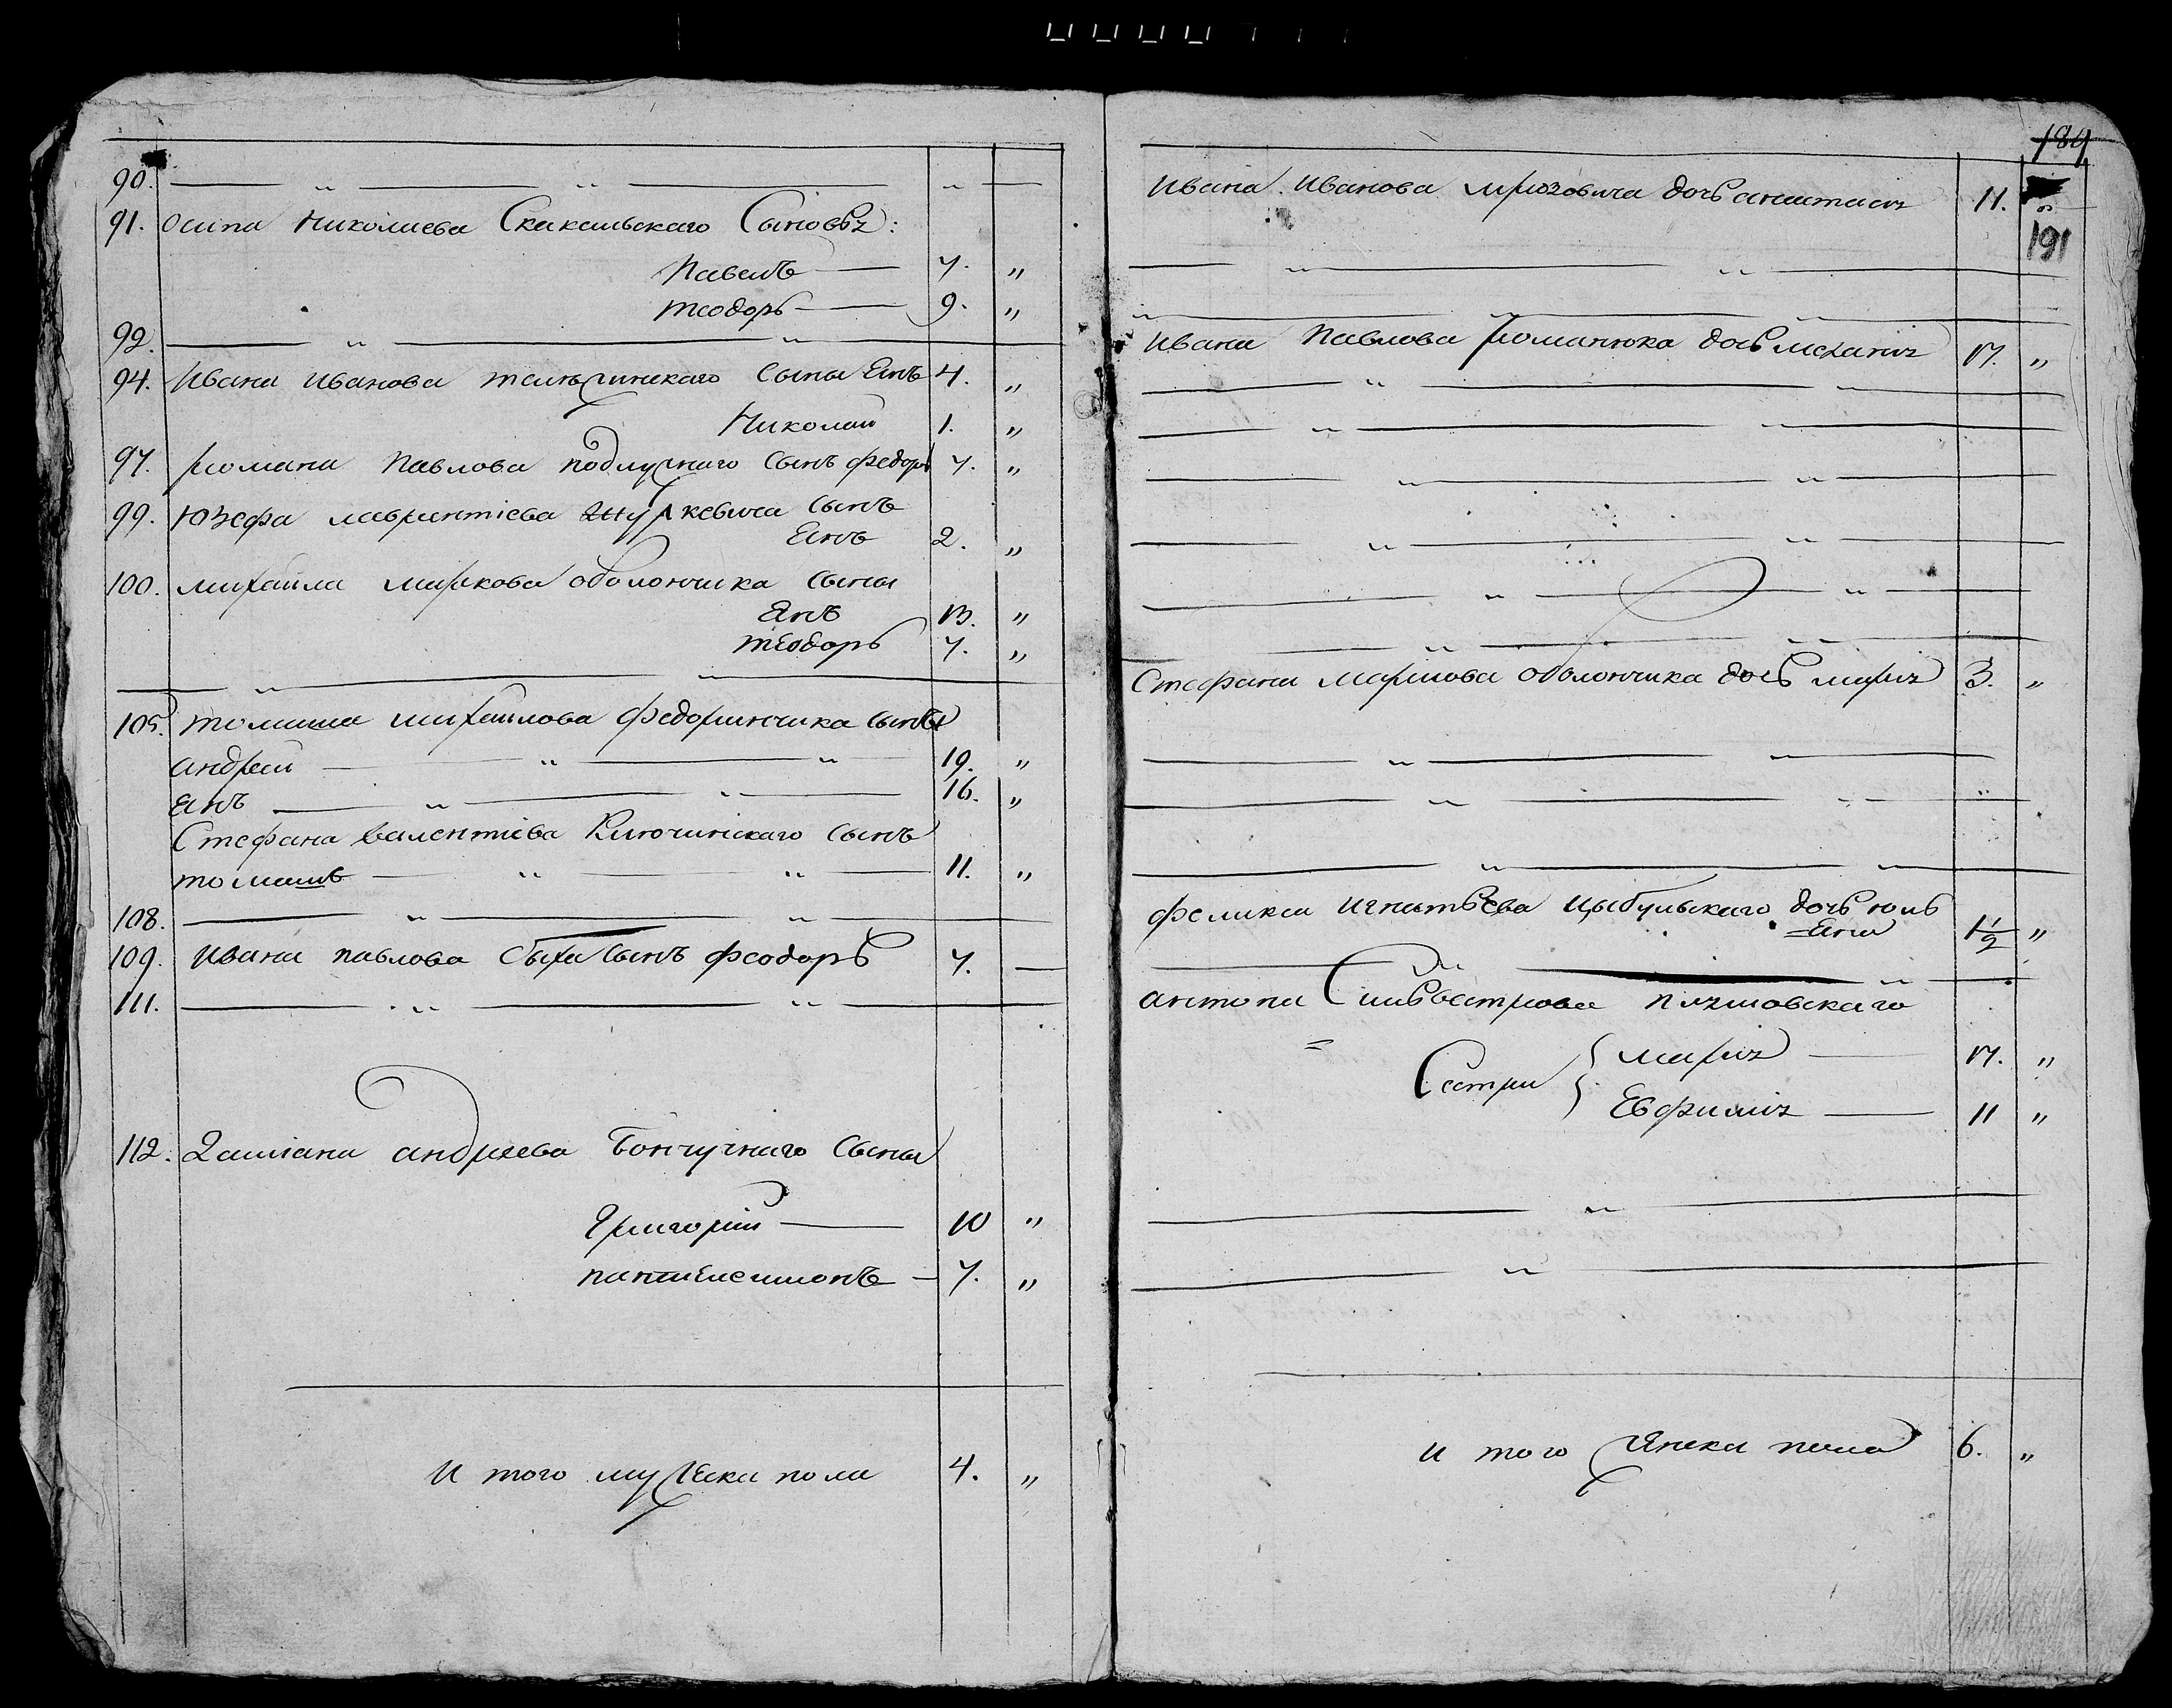 90.
91. Осипа Николаева Скакальскаго Сыновья:
Павелъ 7. "
теодоръ 9. "
92.
94. Ивана Иванова сына Янъ 4. "
Николай 1. "
97. романа Павлова подлужнаго сынъ федоръ 7. "
99. Юзефа лаврентіева сынъ
Янъ 2. "
100. михайла маркова оболончика сыны
Янъ 13. "
теодоръ 7. "
105. томаша михайлова федоринчика сыны
андрей 19. "
Янъ 16. "
Стефана валентіева Ключинскаго сынъ
томашъ 11. "
108.
109. Ивана павлова сынъ феодоръ 7.
111.
112. Даміана андреева сыны
Григорій 10 "
пантелеимонъ 7. "
И того мужеска пола 4. "
184
191
Ивана Иванова мрозовича дочь анастасія 11.
Ивана Павлова романюка дочь меланія 17. "
Стефана маркова оболончика дочь марія 3. "
феликса игнатьева цыбульскаго дочь юль
=яна 1 1/2 "
антона Сильвестрова
= Сестри { марія 17. "
Евфимія 11 "
и того женска пола 6. "